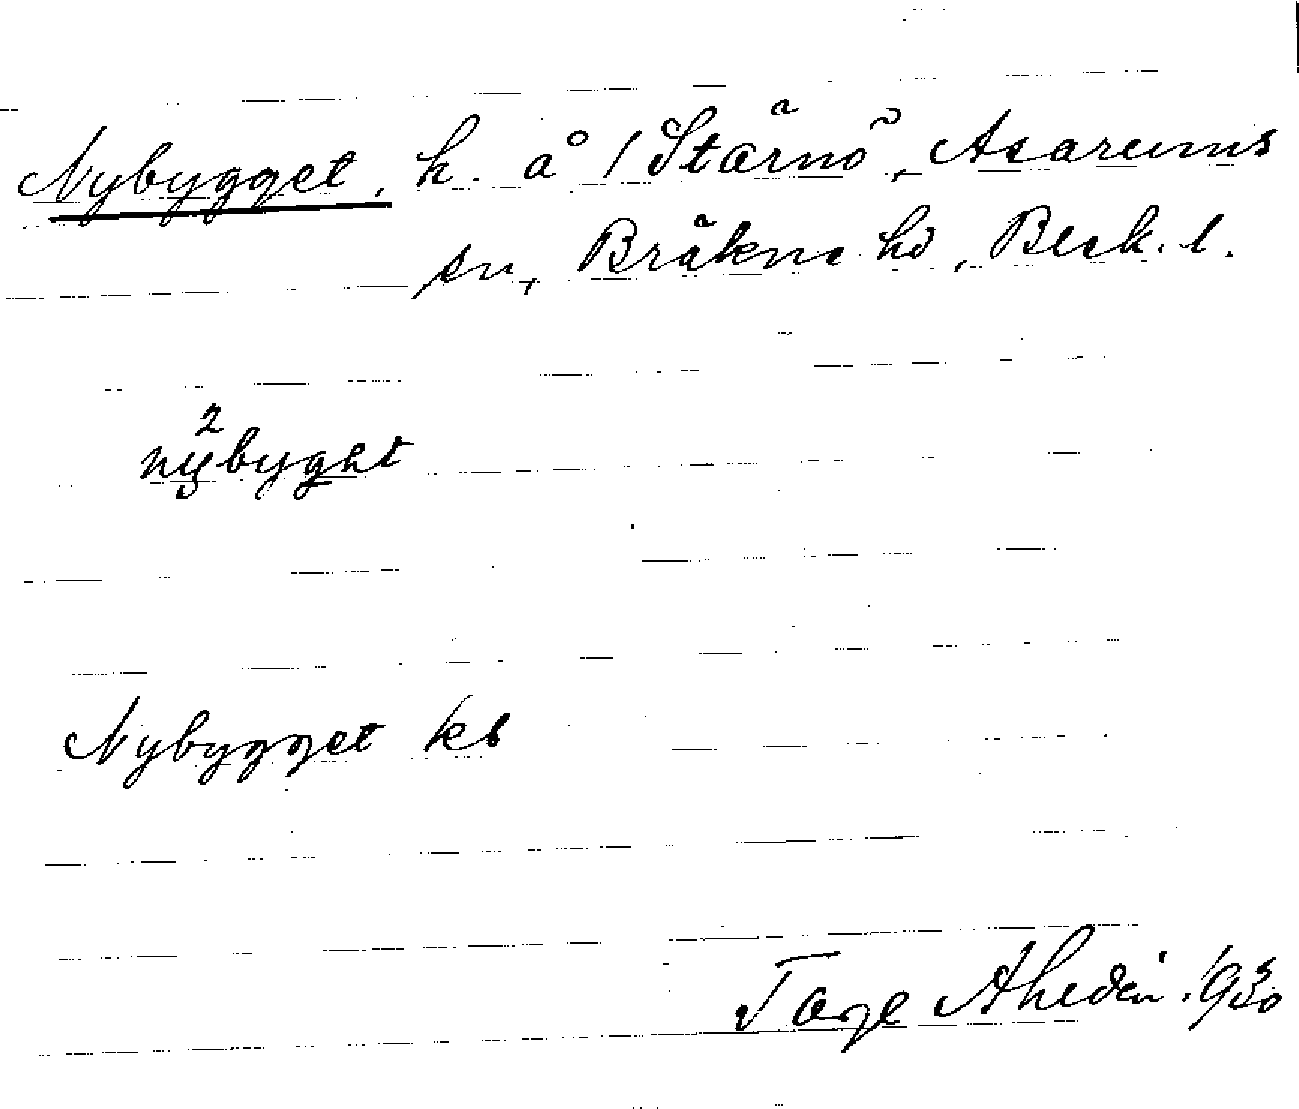 Nybygget, h. å 1 Stärnö, Asarums
sn, Bräkne hd, Blek. l.
2
nybyght
Nybygget kb
Tage Ahldén. 1930